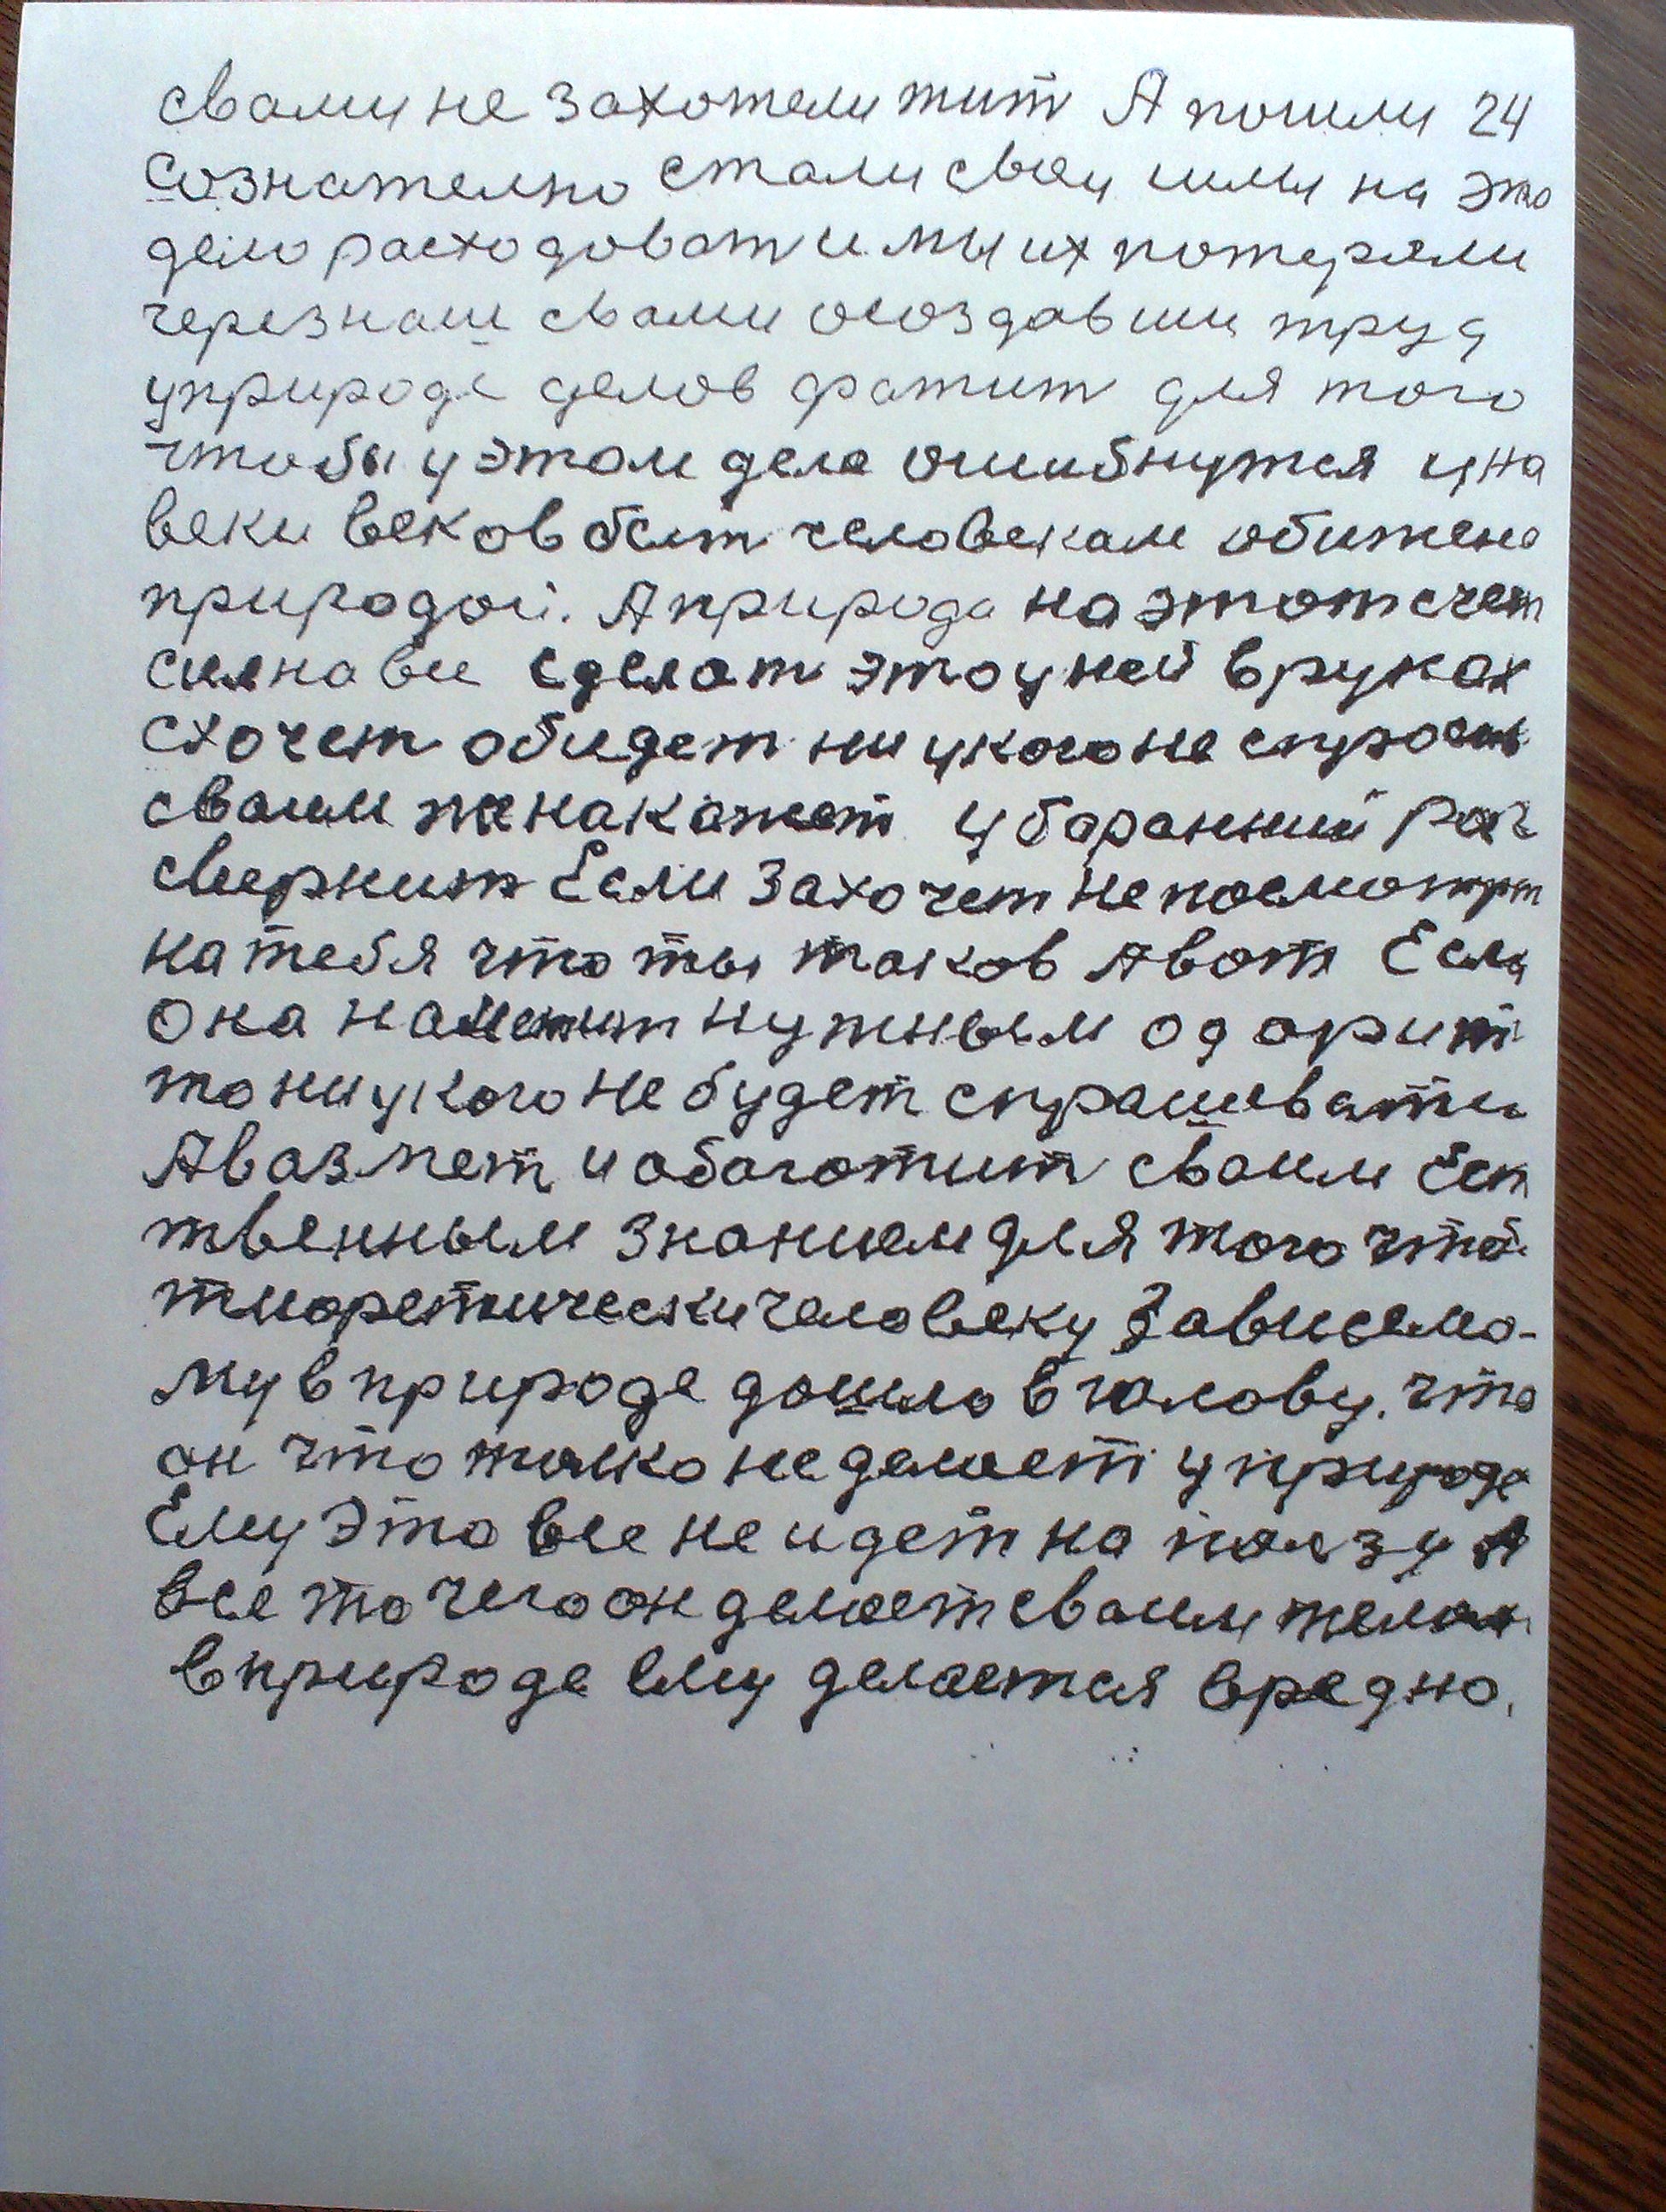 свами не захотели жит А пошли 24
сознателно стали свои силы на это
дело расходоват и мы их потеряли
черезнаш свами создавши труд
уприроде делов фатит для того
чтобы у этом дела ошибнутся у на
веки веков бит человекам обижено
природой. А природа на этот счет
силна все сделат это у ней в руках
схочет обидет ни укого не спросит
сваим женакажет у баранний рог
свернит Если захочет не посмотрит
на тебя что ты таков А вот Если
она наметит нужным одорит
то ни укого не будет спрашивати
А вазмет и обагатит сваим Ест
твенным знанием для того что
тиоретически человеку Зависемо-
му в природе дошло в голову. что
он что толко не делает у природе
Ему это все не идет на ползу А
все то чего он делает сваим телом
в природе ему делается вредно.